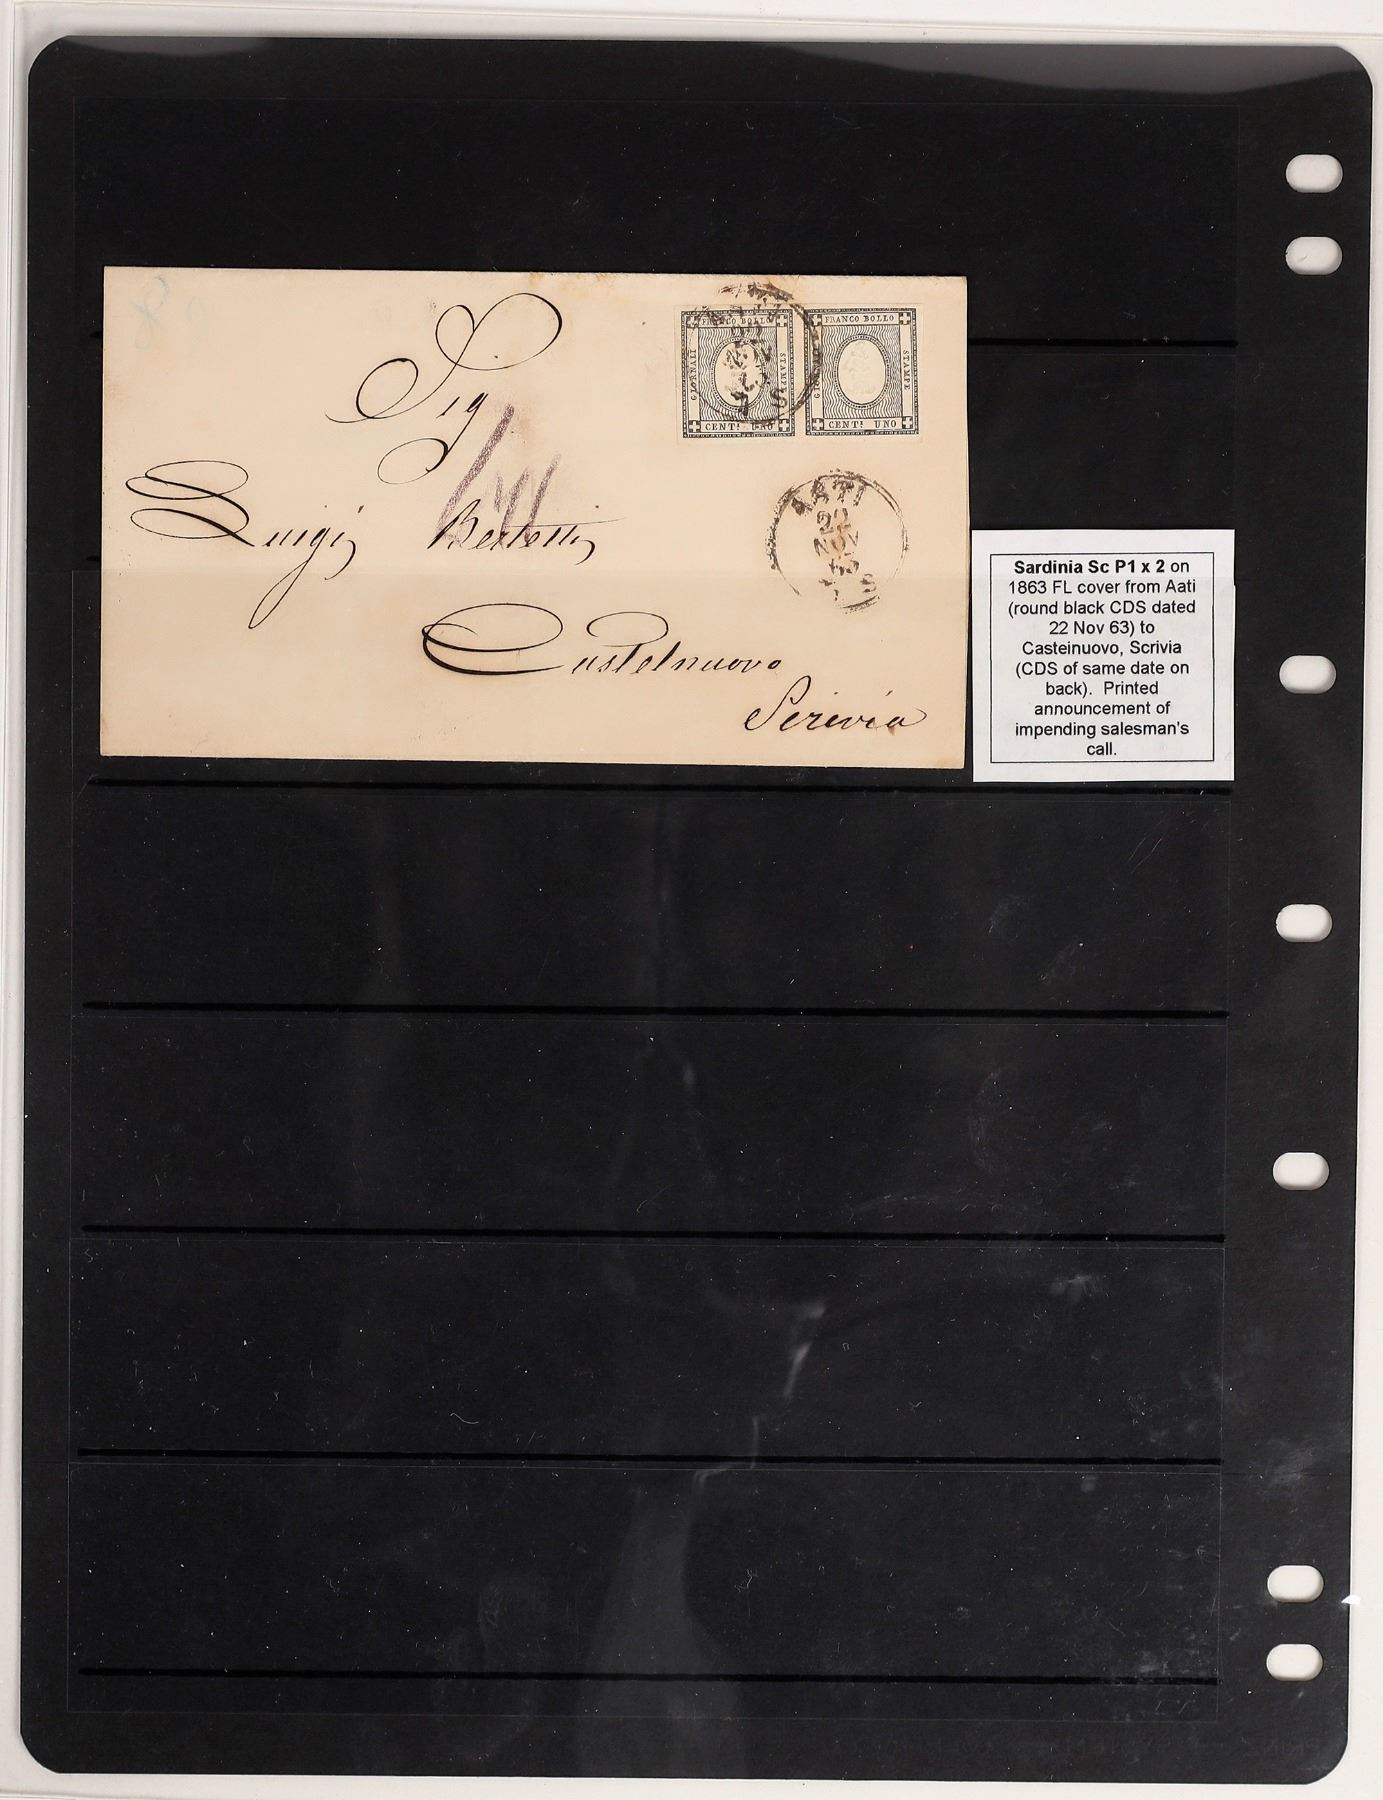 FRANCO BOLLO
GIORNALI
STAMPE
CENT! UNO
FRANCO BOLLO
STAMPE
CENT! UNO
Sig
Luigi Bertetti
ASTI
22
NOV
63
Castelnuovo
Scrivia
Sardinia Sc P1 x 2 on
1863 FL cover from Aati
(round black CDS dated
22 Nov 63) to
Casteinuovo, Scrivia
(CDS of same date on
back). Printed
announcement of
impending salesman's
call.